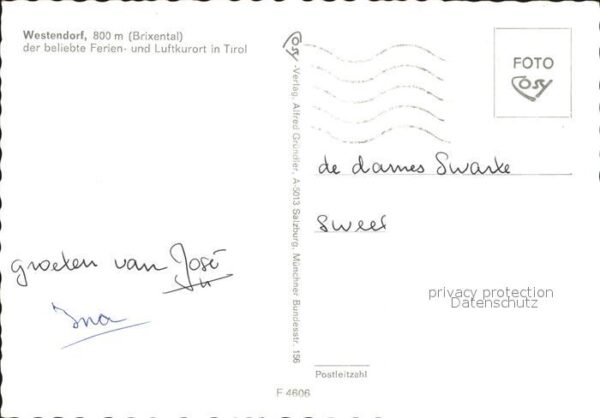 Westendorf, 800 m (Brixental)
der beliebte Ferien- und Luftkurort in Tirol
groeten van José
Ina
Cosy-Verlag, Alfred Gründler, A-5013 Salzburg, Münchner Bundesstr. 156
FOTO
Cosy
de dames Swarte
Sweel
privacy protection
Datenschutz
Postleitzahl
F 4606